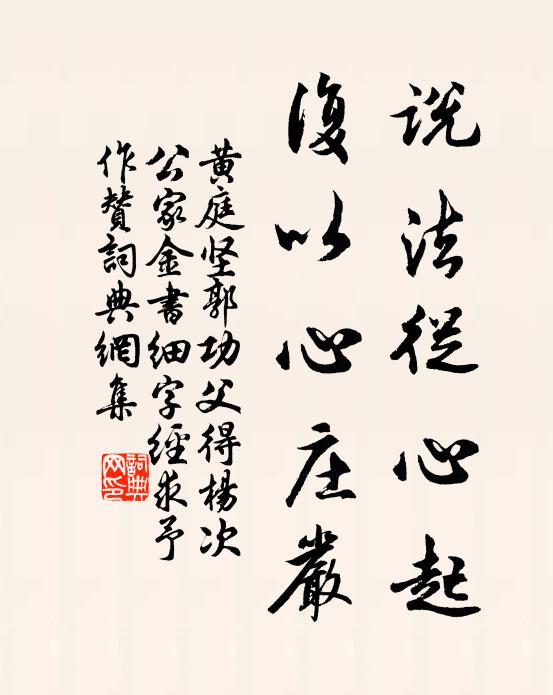 說法從心起
復以心庄嚴
黄庭坚郭功父得楊次
公家金書細字經求予
作贊詞典網集
詞典
网印